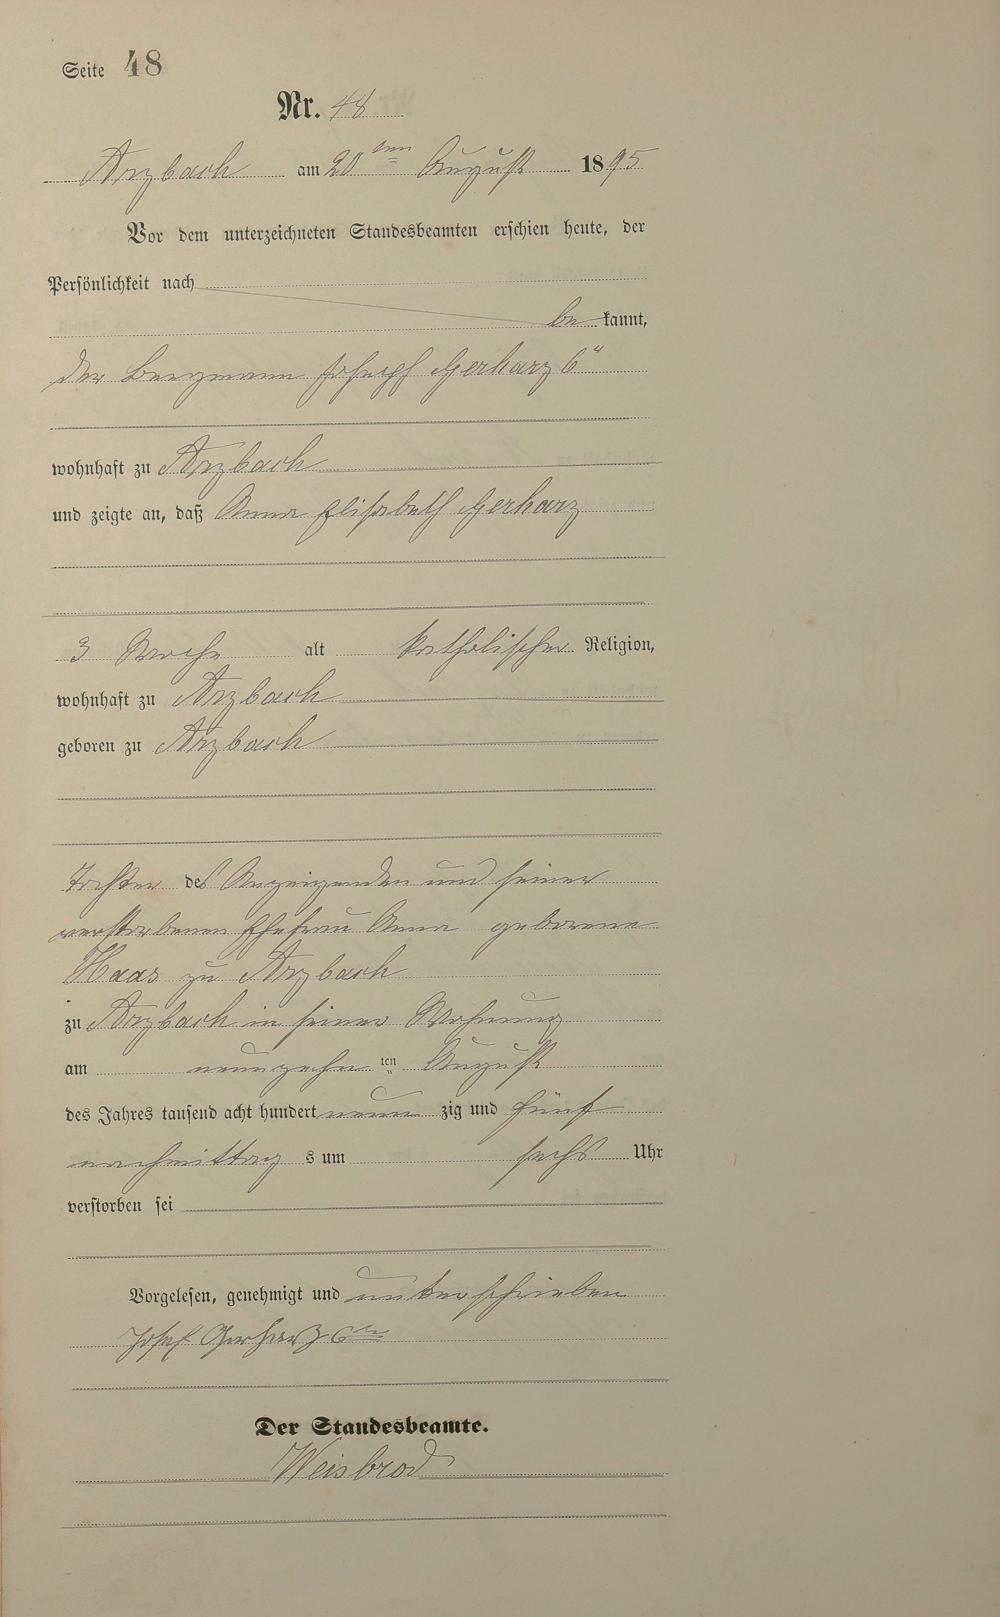 Seite 48
Nr. 48
Arzbach am 20ten August 1895
Vor dem unterzeichneten Standesbeamten erschien heute, der
Persönlichkeit nach
be kannt,
der Bergmann Joseph Gerharz 6"
wohnhaft zu Arzbach
und zeigte an, daß Anna Elisabeth Gerharz
3 Woche alt katholischer Religion,
wohnhaft zu Arzbach
geboren zu Arzbach
Tochter des Anzeigenden und seiner
verstorbenen Ehefrau Anna geborene
Haas zu Arzbach
zu Arzbach in seiner Wohnung
am neunzehnten August
des Jahres tausend acht hundert neun zig und fünf
nachmittag s um sechs Uhr
verstorben sei
Vorgelesen, genehmigt und unterschrieben
Josef Gerharz 6ter
Der Standesbeamte.
Weisbrod